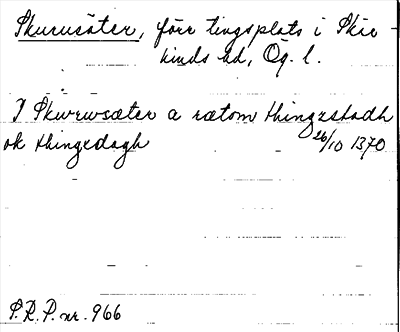 Skurusäter, förr tingsplats i Skär
kinds hd, Ög. l.
J Skurwsæter a rætom thingxstadh
ok thingxdagh 26/10 1370
S.R.P. nr. 966